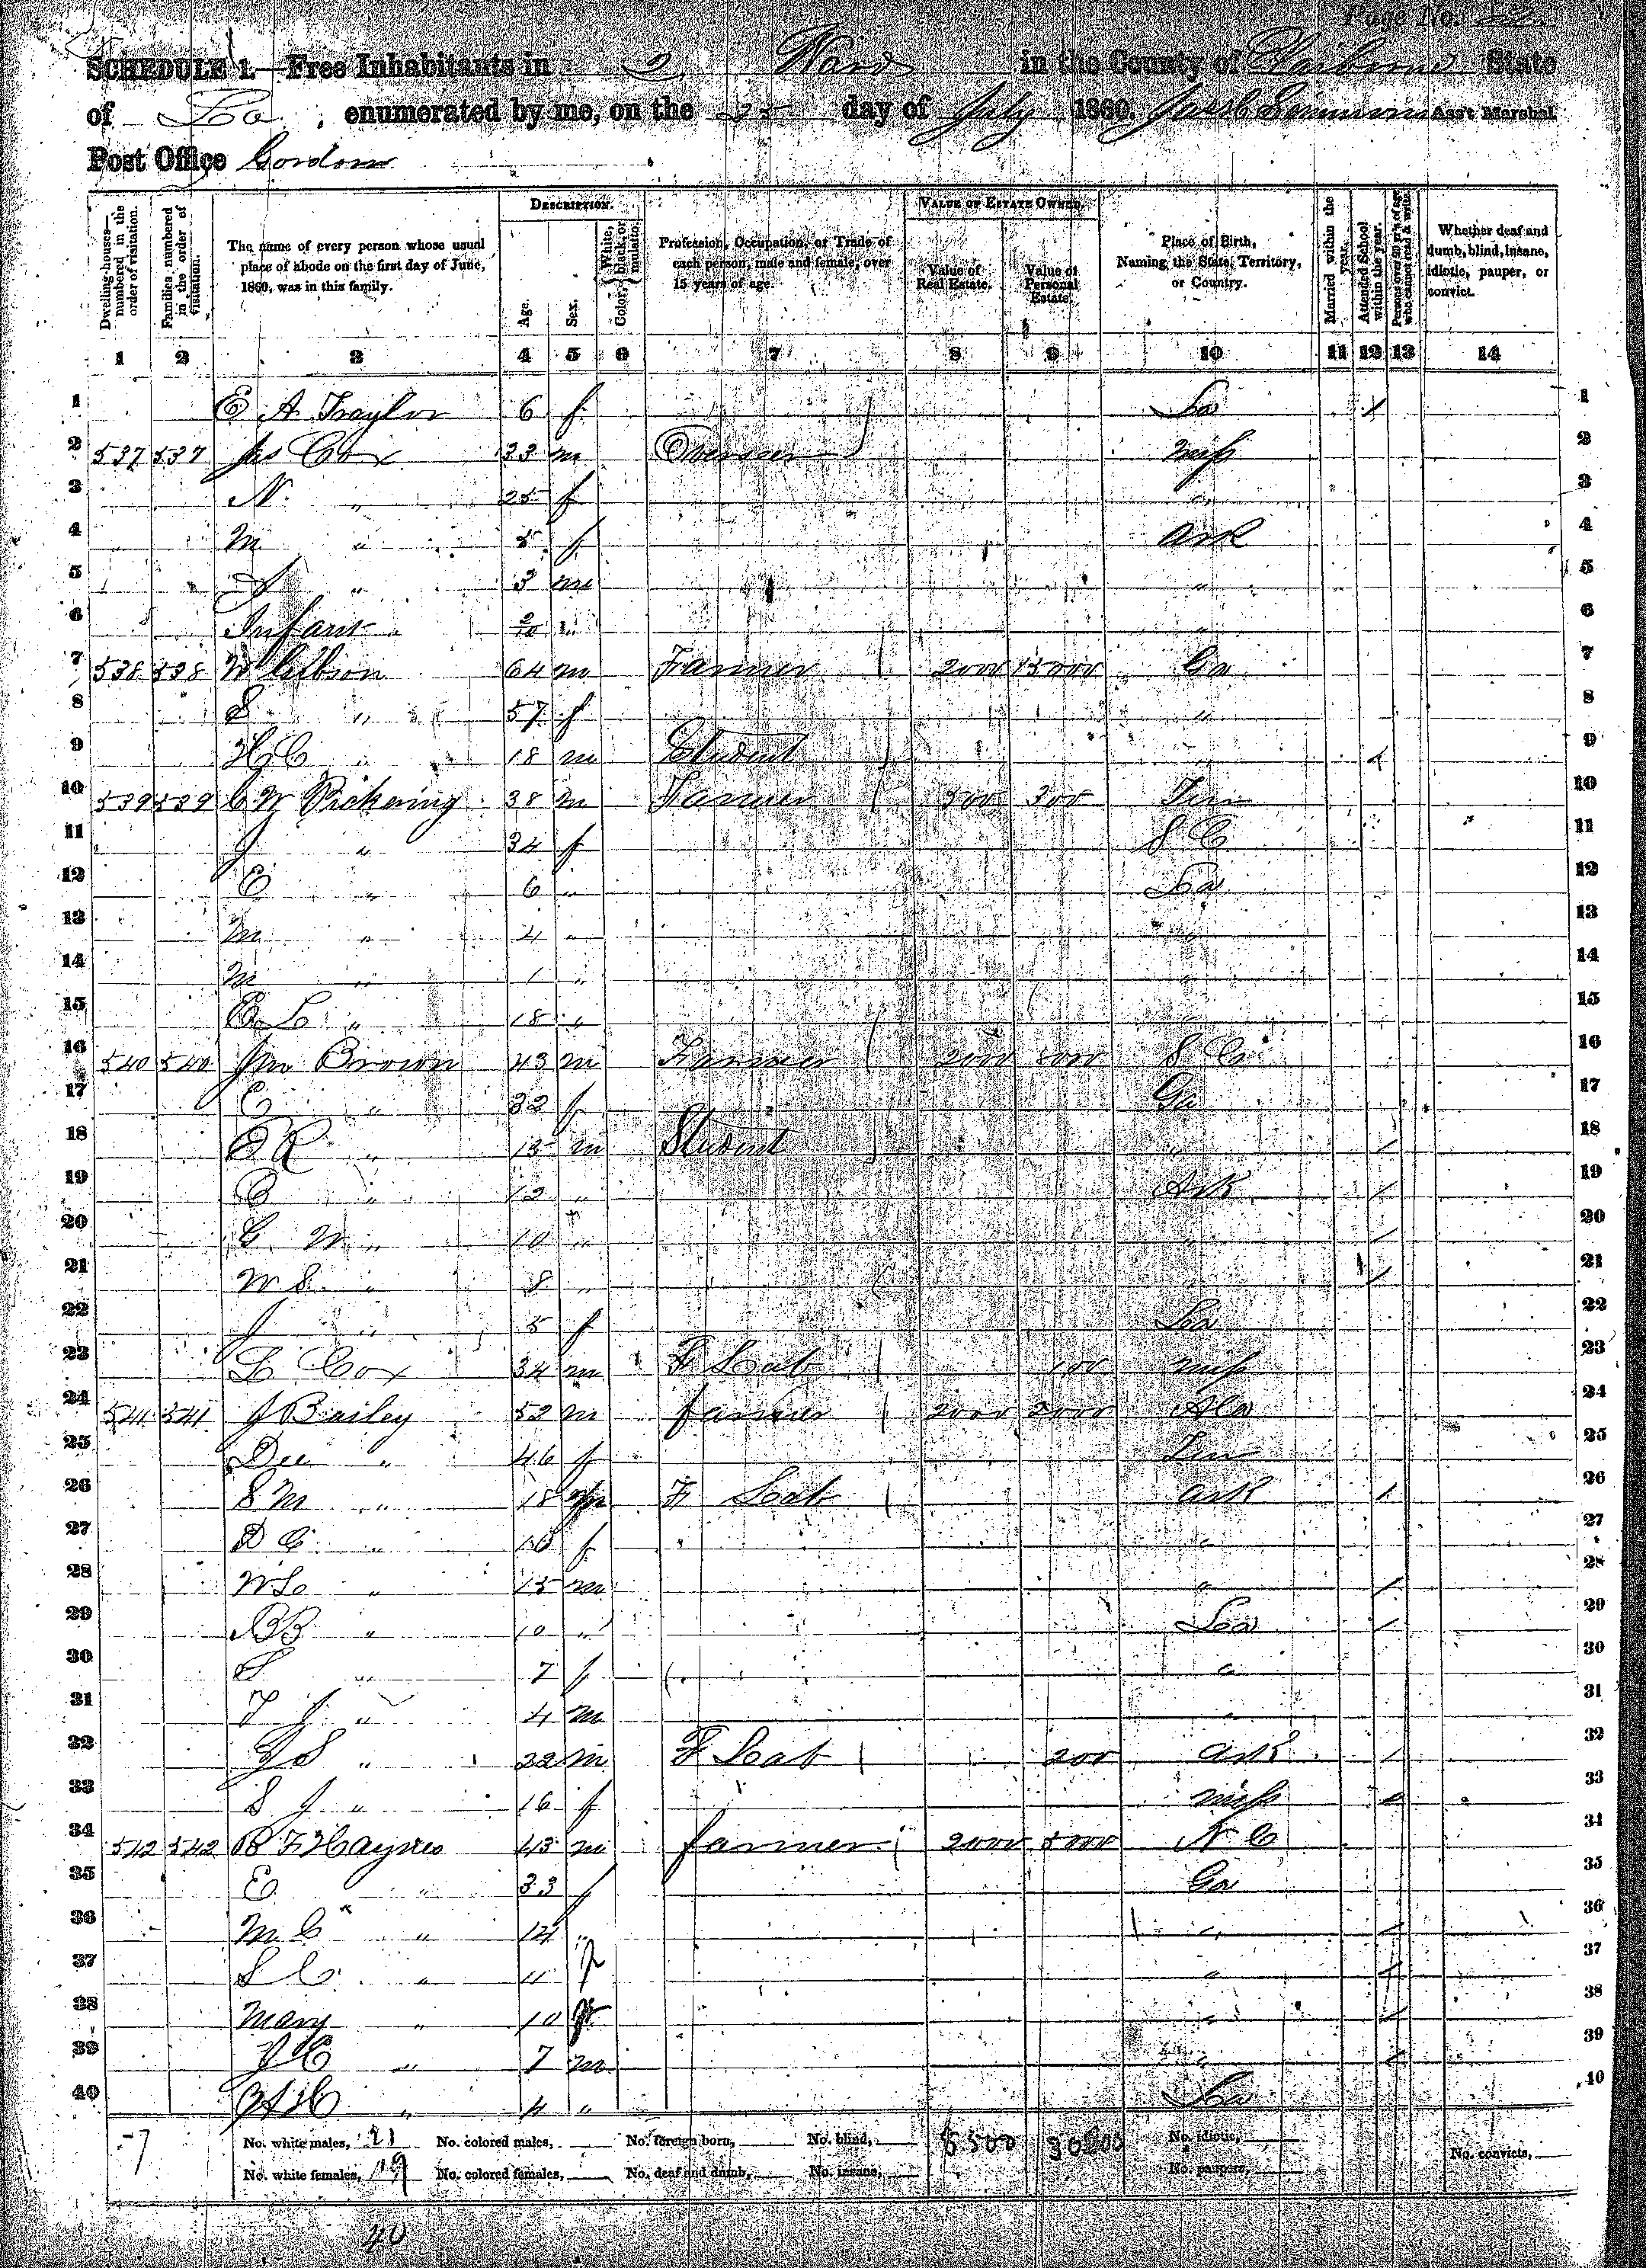 Page No.
SCHEDULE 1.—Free Inhabitants in 2 Ward in the County of Claiborne State
of La, enumerated by me, on the 25 day of July 1860. Ass't Marshal.
Post Office
Dwelling-houses—numbered in the order of visitation.
Families numbered in the order of visitation.
The name of every person whose usual place of abode on the first day of June, 1860, was in this family.
DESCRIPTION.
Age.
Sex.
Color, White, black, or mulatto.
Profession, Occupation, or Trade of each person, male and female, over 15 years of age.
VALUE OF ESTATE OWNED.
Value of Real Estate.
Value of Personal Estate.
Place of Birth, Naming the State, Territory, or Country.
Married within the year.
Attended School within the year.
Persons over 20 y'rs of age who cannot read & write.
Whether deaf and dumb, blind, insane, idiotic, pauper, or convict.
1 2 3 4 5 6 7 8 9 10 11 12 13 14
1 E A Traylor 6 f La / 1
2 537 537 Cox 33 m Overseer Miss 2
3 N " 25 f " 3
4 M " 5 f Ark 4
5 " 3 m " 5
6 Infant 2/10 " " 6
7 538 538 W Gibson 64 m Farmer 2000 15000 Ga 7
8 S " 57 f " 8
9 H C " 18 m Student " / 9
10 539 539 C W Pickering 38 m Farmer 500 300 Ten 10
11 J " 34 f S C 11
12 E " 6 " La 12
13 M " 4 " " 13
14 M " 1 " " 14
15 " 18 " " 15
16 540 540 Jno Brown 43 m Farmer 2000 S C 16
17 E " 32 f Ga 17
18 " 15 m Student " / 18
19 C " 12 " Ark / 19
20 M " 10 " " / 20
21 W S " 8 " " / 21
22 J " 5 f La 22
23 L Cox 34 m F Lab 100 Miss 23
24 541 541 J Bailey 52 m farmer 2000 Ala 24
25 Dee " 46 f Ten 25
26 S M " 18 m F Lab Ark / 26
27 D C " f " 27
28 W L " 15 m " / 28
29 B B " 10 " La / 29
30 S " 7 f " 30
31 T J " 4 m " 31
32 J S " 22 m F Lab 200 Ark / 32
33 S J " 16 f Miss / 33
34 542 542 B F Haynes 43 m farmer 2000 5000 N C 34
35 E " 33 f Ga 35
36 M C " 14 " " / 36
37 S C " 11 f " / 37
38 Mary " 10 " / 38
39 J C " 7 m " / 39
40 " 4 " La 40
No. white males, 21 No. colored males, No. foreign born, No. blind, 8500 No. idiotic,
No. white females, 19 No. colored females, No. deaf and dumb, No. insane, No. paupers, No. convicts,
40